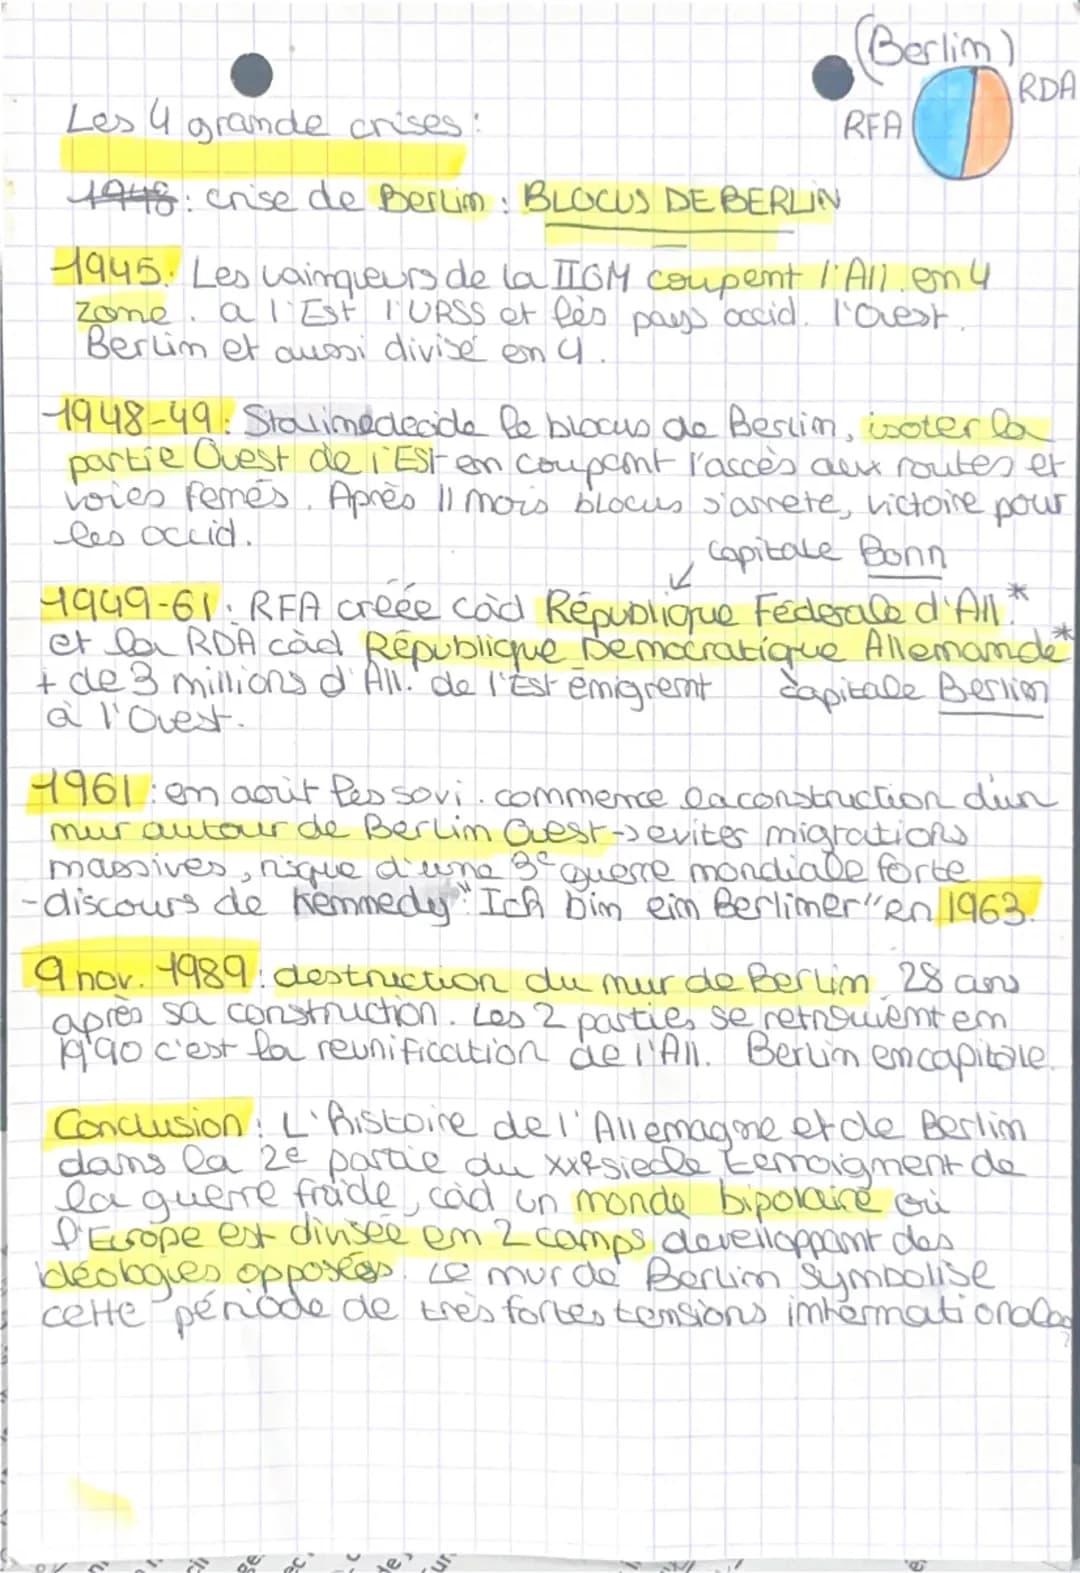 (Berlin)
RDA
RFA
Les 4 grande crises :
1948 : crise de Berlin : BLOCUS DE BERLIN
1945. Les vainqueurs de la IIGM coupent l'All. en 4
zone. a l'Est l'URSS et les pays occid. l'Ouest.
Berlin et aussi divisé en 4.
1948-49 : Staline decide le blocus de Berlin, isoler la
partie Ouest de l'Est en coupant l'accès aux routes et
voies ferrés. Après 11 mois blocus s'arrete, victoire pour
les occid.
capitale Bonn
1949-61 : RFA créée càd République Féderale d'All.*
et la RDA càd République Democratique Allemande*
+ de 3 millions d'All. de l'Est émigrent capitale Berlin
à l'Ouest.
1961 : en aout les sovi. commence la construction d'un
mur autour de Berlin Ouest -> eviter migrations
massives, risque d'une 3e guerre mondiale forte
- discours de Kennedy "Ich bin ein Berliner" en 1963.
9 nov. 1989 : destruction du mur de Berlin 28 ans
après sa construction. Les 2 parties se retrouvent en
1990 c'est la reunification de l'All. Berlin en capitale.
Conclusion : L'histoire de l'Allemagne et de Berlin
dans la 2e partie du XXe siecle temoignent de
la guerre froide, càd un monde bipolaire où
l'Europe est divisée en 2 camps developpant des
idéologies opposées. Le mur de Berlin symbolise
cette période de très fortes tensions internationales